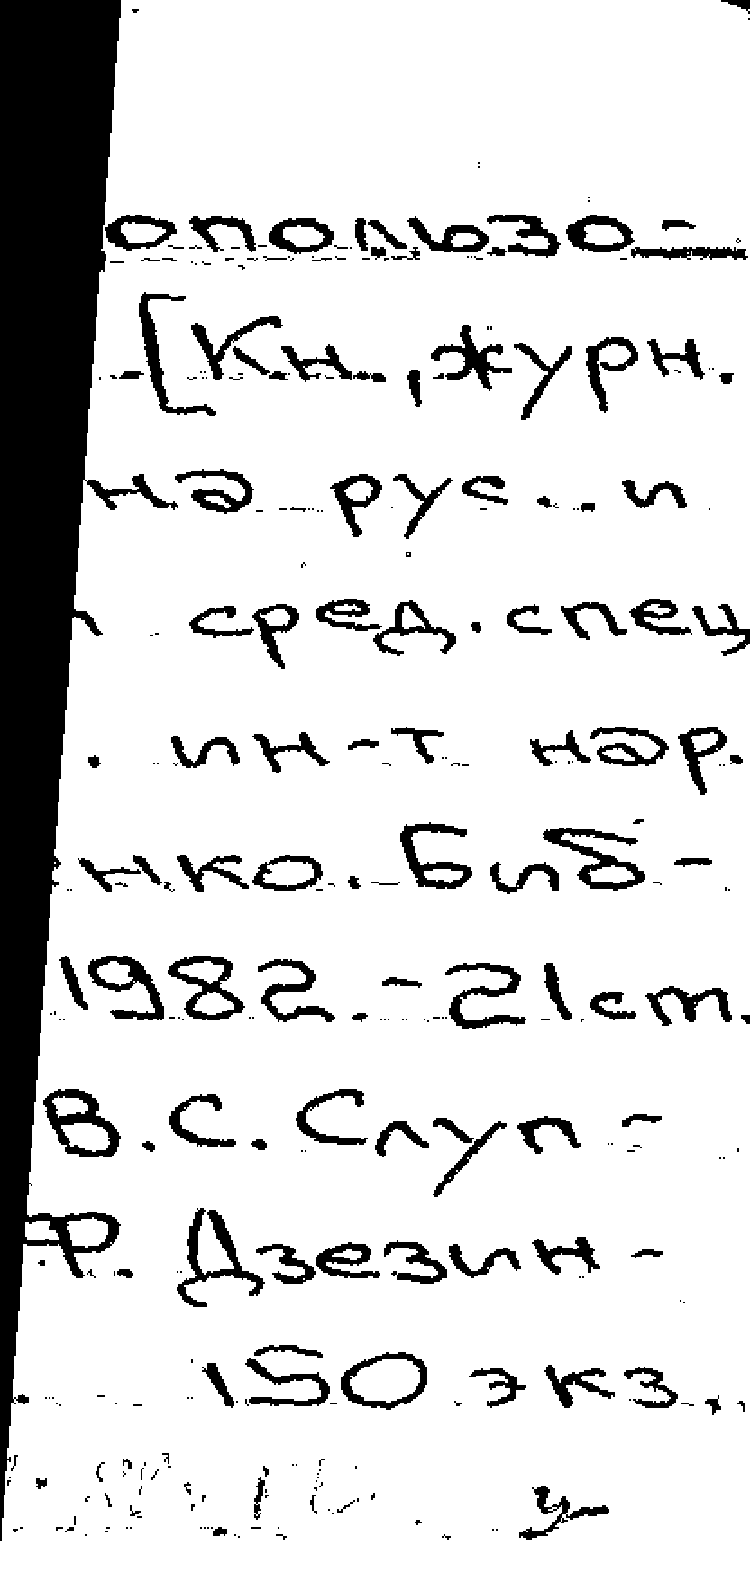 ополъзо-
[Кн., журн.
на рус. и
сред. спец
. ин-т нар.
нко. Биб-
1982. - 21 ст.
В. С. Слуп-
Ф. Дзезин-
150 экз.